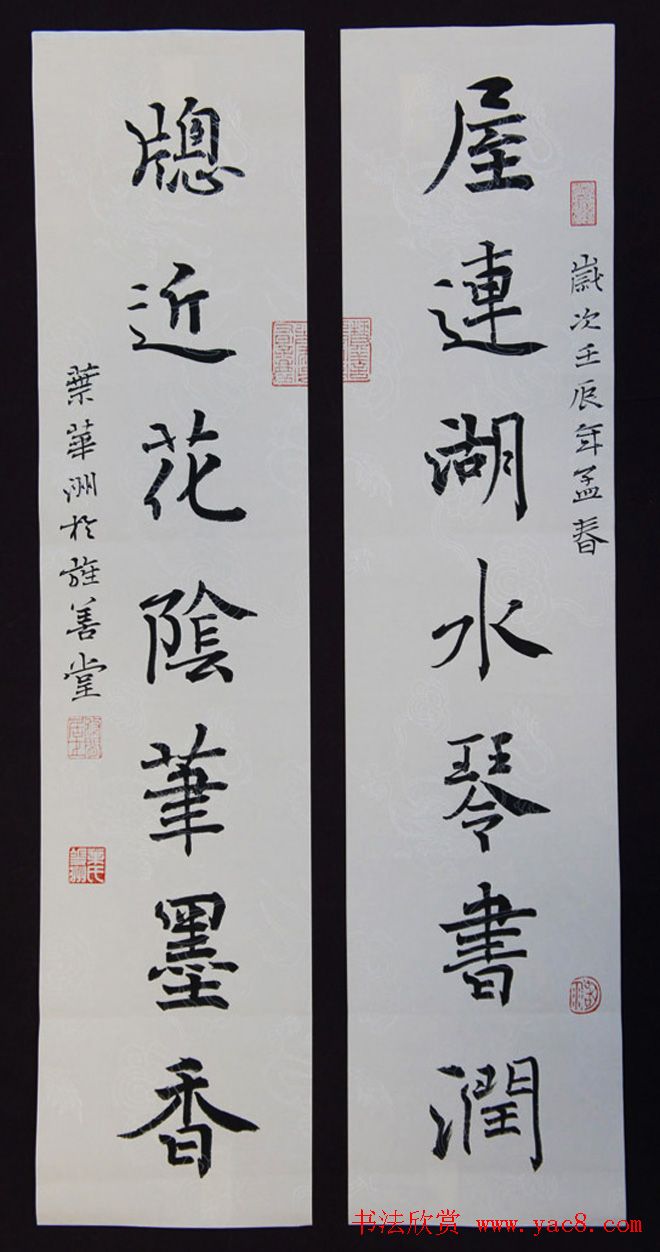 屋連湖水琴書潤
歲次壬辰年孟春
牕近花陰筆墨香
葉華洲於雅善堂
书法欣赏 www.yac8.com